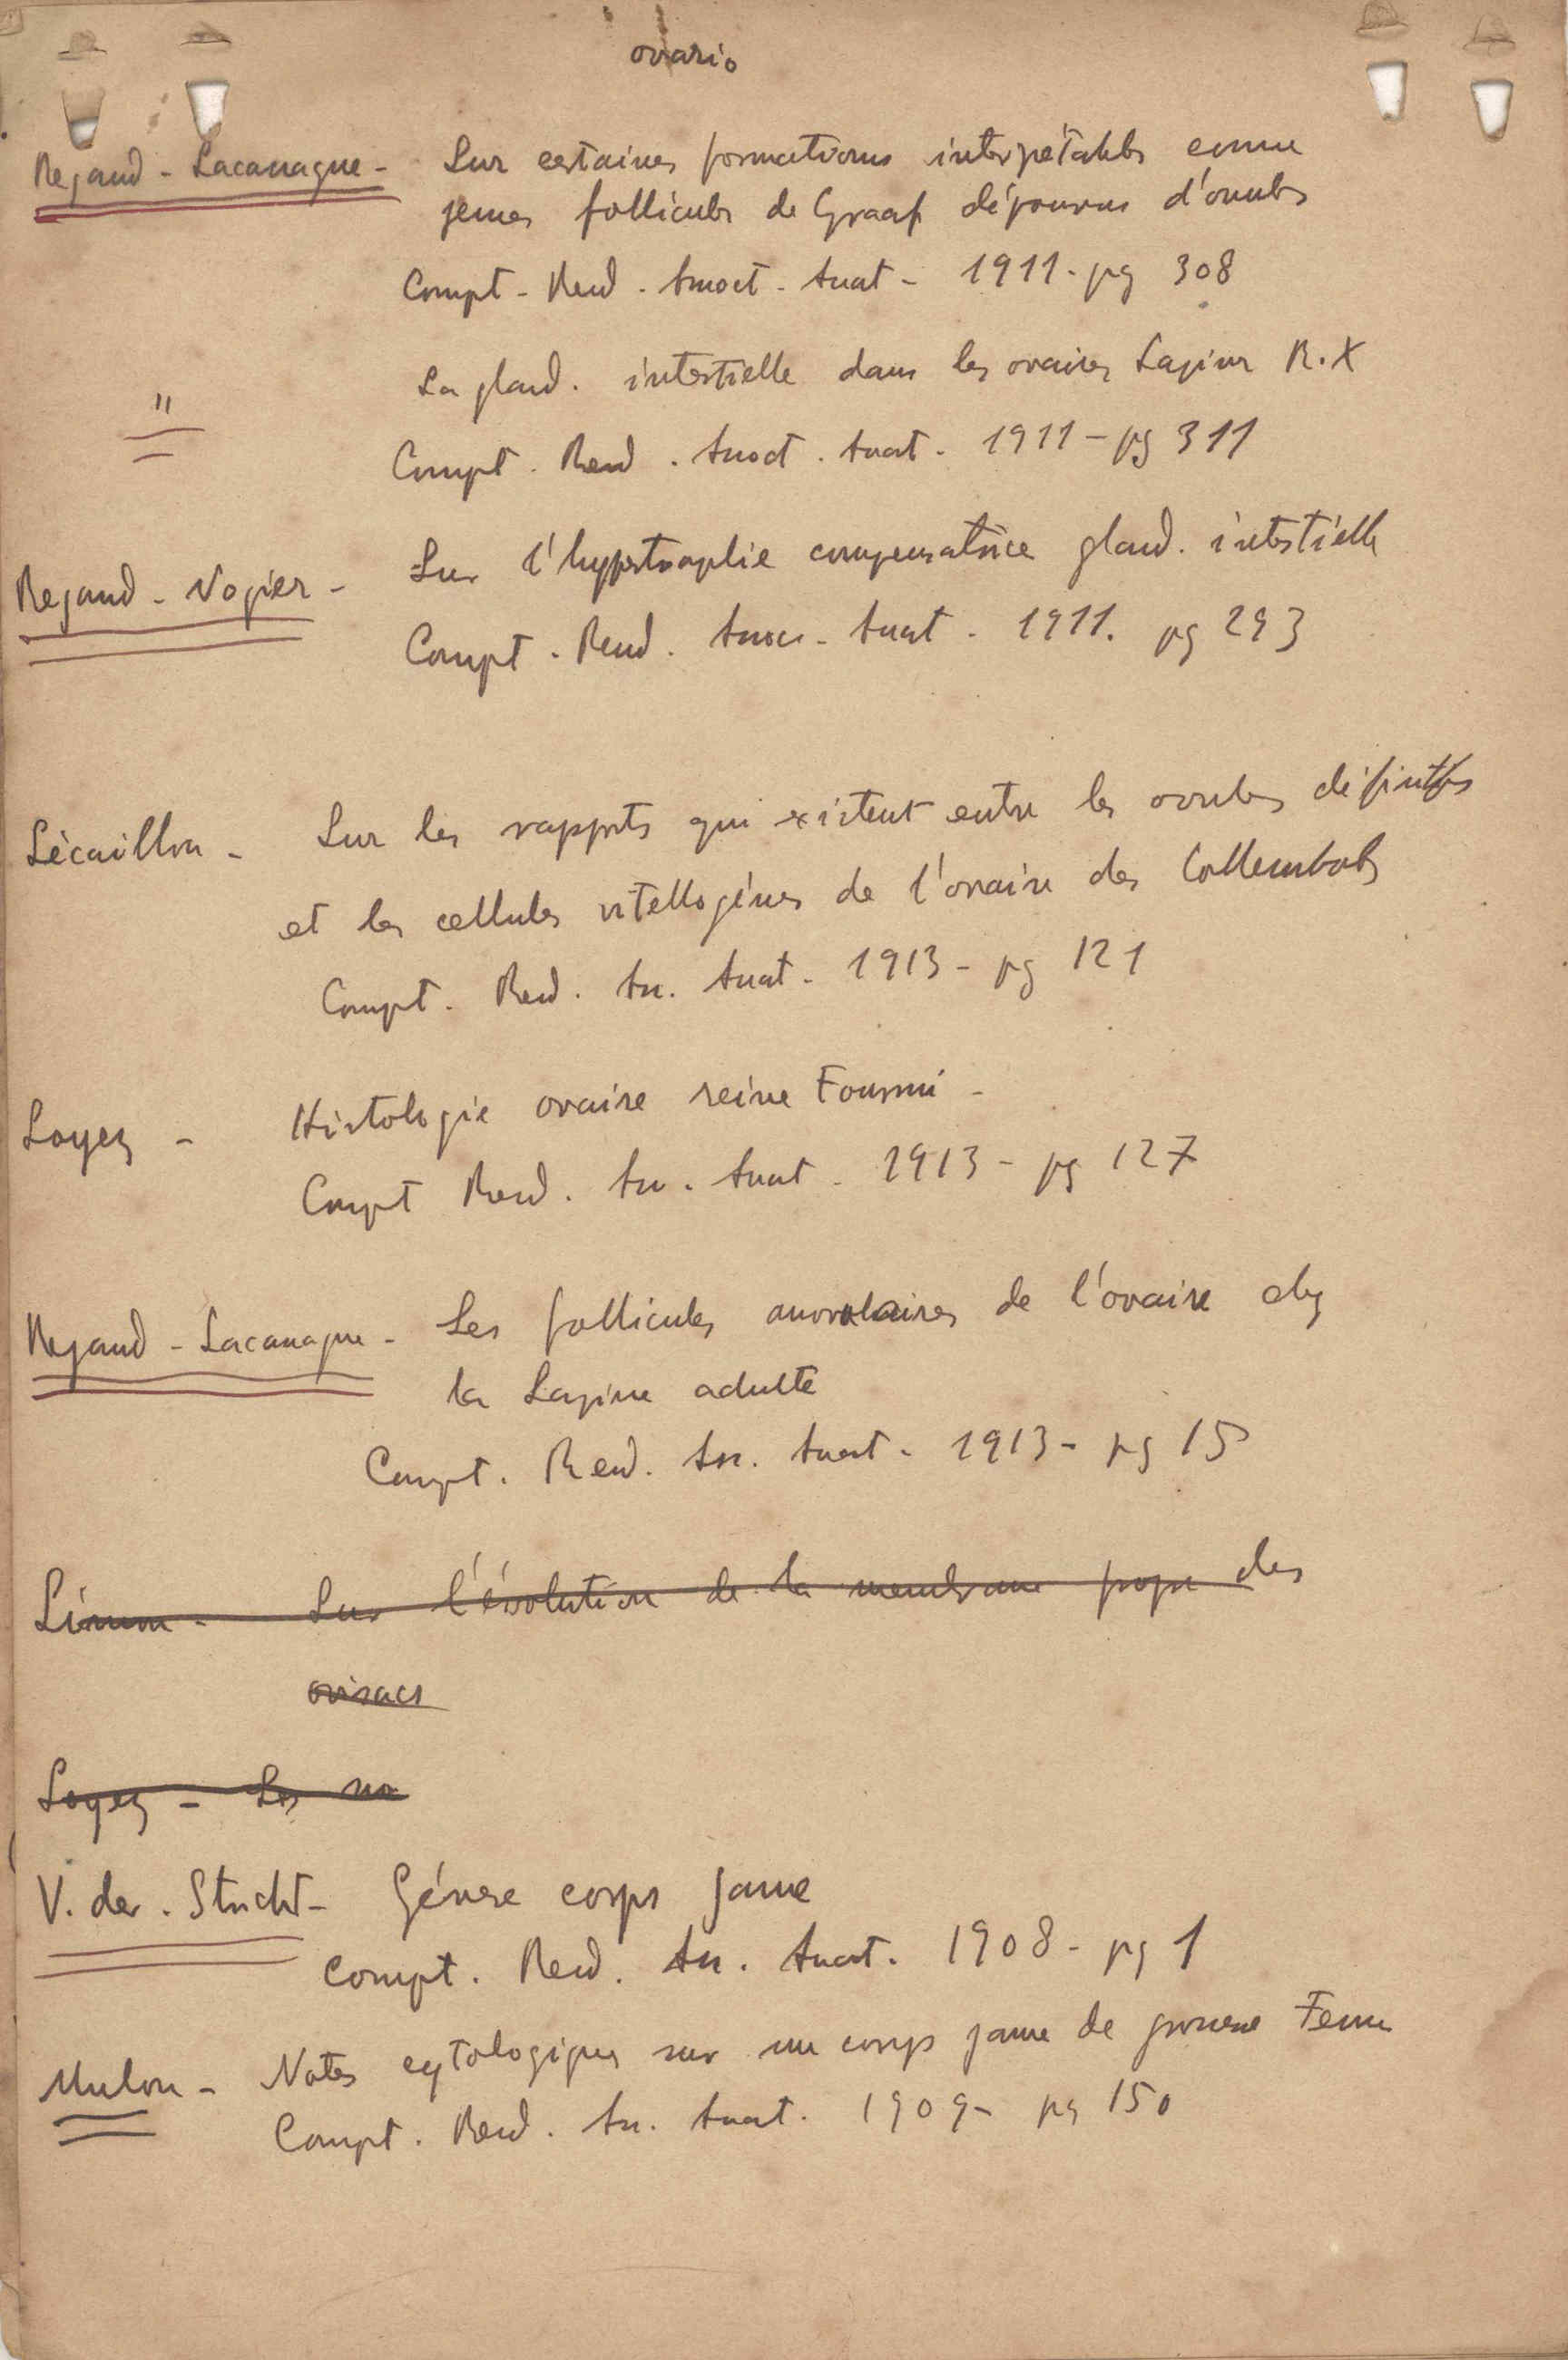 ovario
Regaud - Lacassagne - Sur certaines formations interpétables comme
jeunes follicules de Graaf dépourvus d'ovules
Compt - Rend . Assoct . Anat - 1911 - pg 308
" La gland. interstielle dans les ovaires Lapins R.X
Compt . Rend . Assoct . Anat . 1911 - pg 311
Regaud - Nogier - Sur l'hypertrophie compensatrice gland. interstielle
Compt . Rend . Assoc - Anat . 1911. pg 293
Lécaillon - Sur les rapports qui existent entre les ovules définitifs
et les cellules vitellogénes de l'ovaire des Collemboles
Compt . Rend . Ass. Anat . 1913 - pg 121
Loyez - Histologie ovaire reine Fourmi -
Compt Rend . Ass . Anat . 1913 - pg 127
Regaud - Lacassagne - Les follicules anovulaires de l'ovaire chez
la Lapine adulte
Compt . Rend . Ass . Anat . 1913 - pg 15
Limon - Sur l'évolution de la membrane propre des
ovisacs
Loyez - Les
V. der . Stricht - Génese corps jaune
Compt . Rend . Ass . Anat . 1908 - pg 1
Mulon - Notes cytologiques sur un corps jaune de grossesse Femme
Compt . Rend . Ass . Anat . 1909 - pg 150